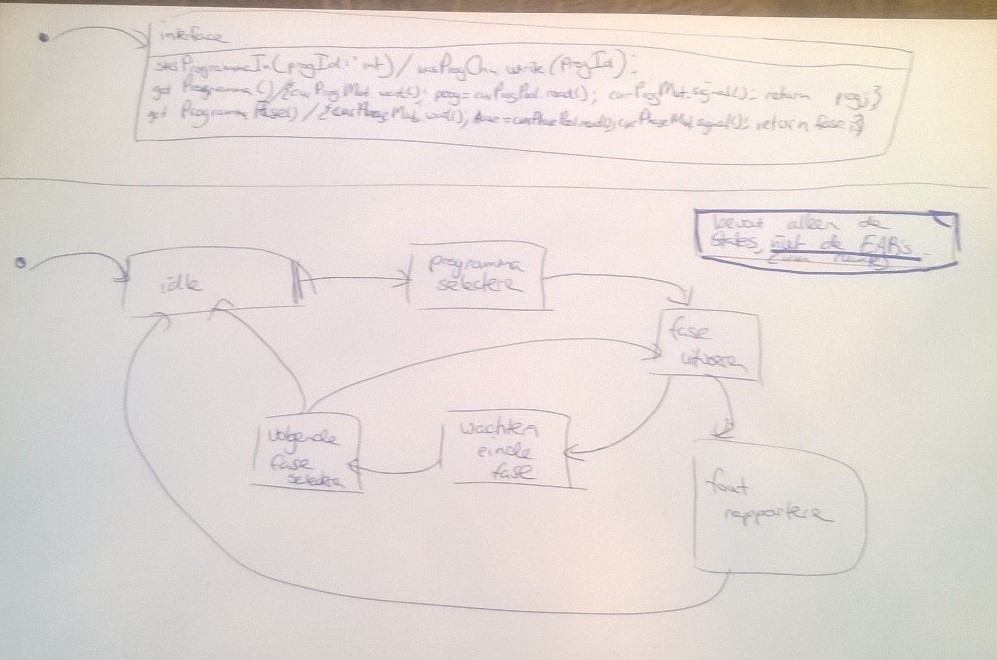 interface
Programma In(progId: int) / write(ProgId);
get Programma () / {curProgMut.wait(); prog=curProgPool.read(); curProgMut.signal(); return prog;}
get Programma Fase() / {curPhaseMut.wait(); fase=curPhasePool.read(); curPhaseMut.signal(); return fase;}
bevat alleen de
states, niet de EAB's
idle
programma
selectere
fase
uitvoeren
volgende
fase
selecteren
wachten
einde
fase
fout
rapportere